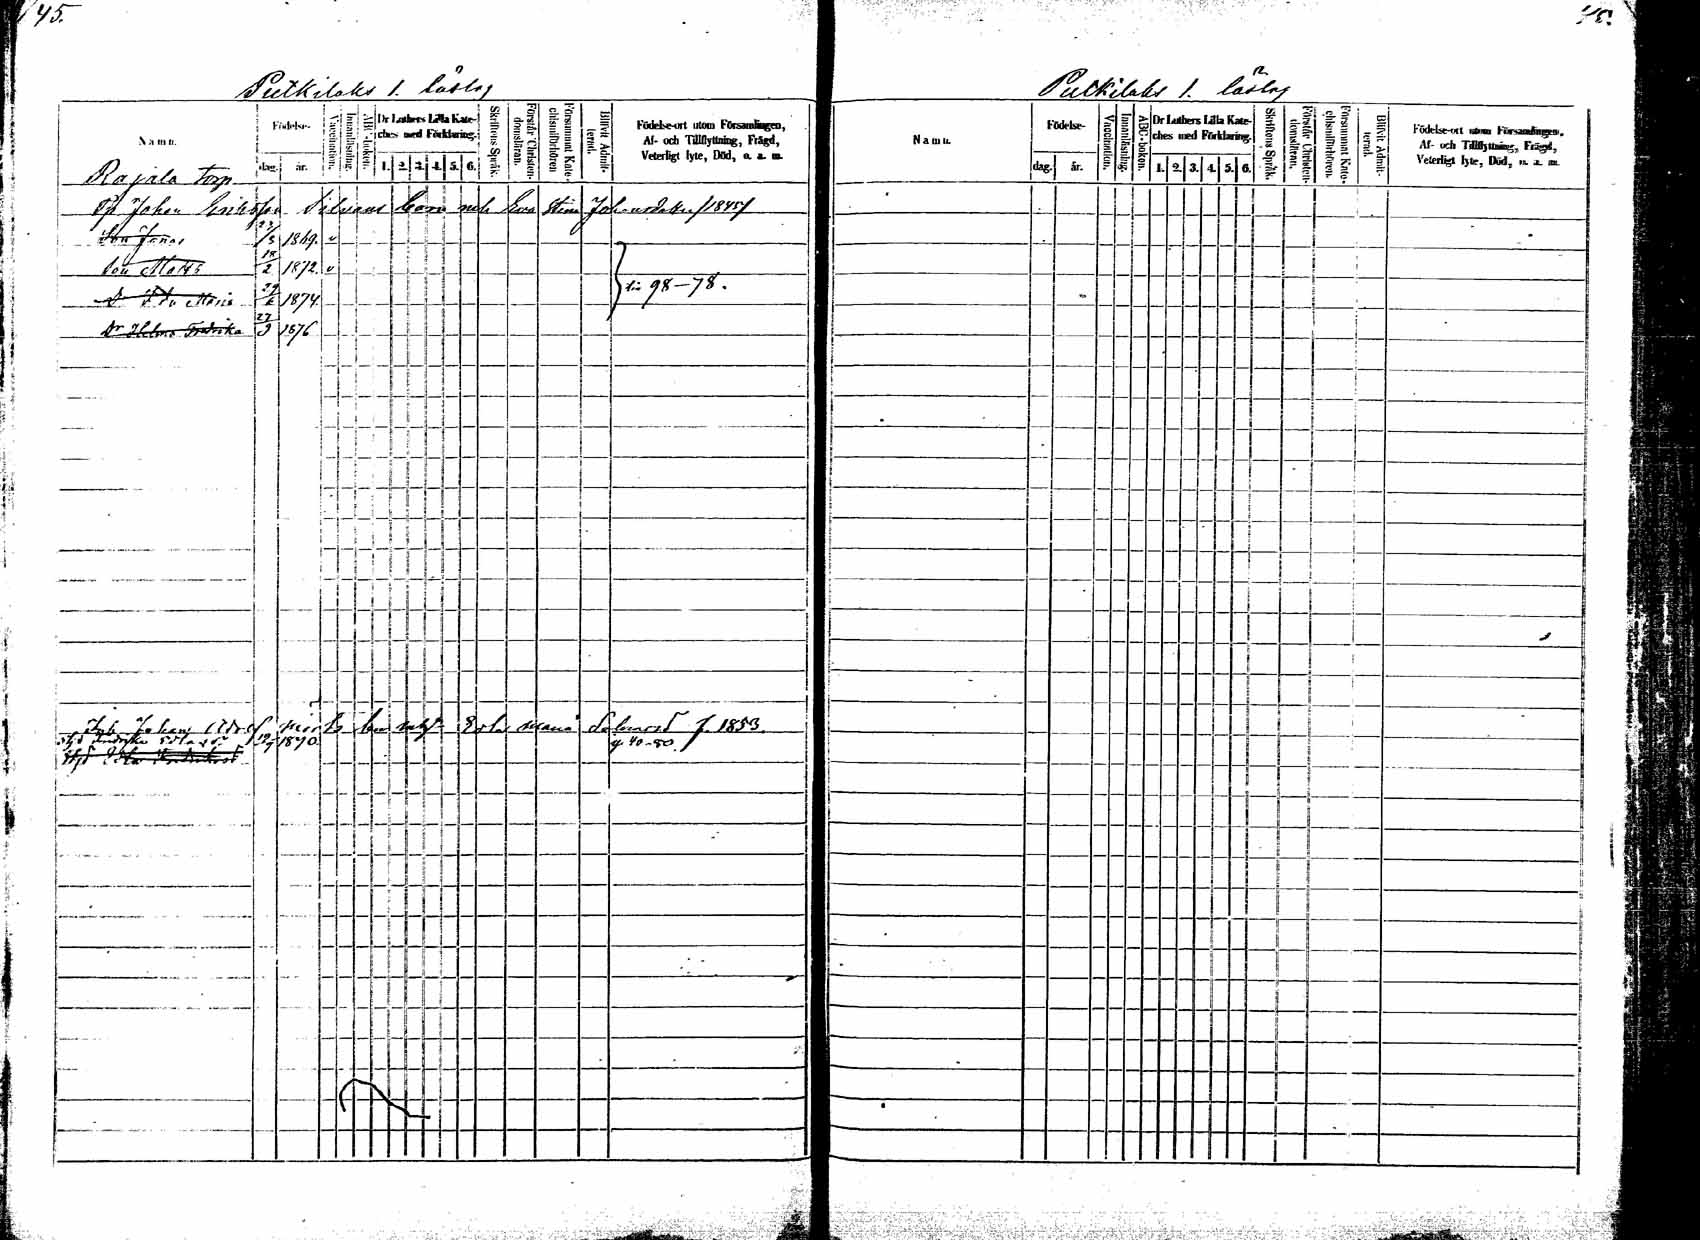 45.
Putkilaks 1. läslag
Namn.
Födelse-
dag. år.
Vaccination.
Innanläsning.
ABC-boken.
Dr Luthers Lilla Kate-
ches med Förklaring.
1. 2. 3. 4. 5. 6.
Skriftens Språk.
Förstår Christen-
domsläran.
Försummat Kate-
chismiförhören
Blifvit Admit-
terad.
Födelse-ort utom Församlingen,
Af- och Tillflyttning, Frägd,
Veterligt lyte, Död, o. a. m.
Rajala torp
Tp Johan Eriksson Silvans barn m h Eva Stina Johansdotter /1845/
Son Jonas 23/3 1869. v
Son Matts 18/2 1872. v
Dr Ida Maria 29/6 1874.
Dr Helma Fredrika 27/9 1876
98-78.
Johan barn Maria f. 1853.
Fredrika 1870. 40-80.
45.
Putkilaks 1. läslag
Namn.
Födelse-
dag. år.
Vaccination.
Innanläsning.
ABC-boken.
Dr Luthers Lilla Kate-
ches med Förklaring.
1. 2. 3. 4. 5. 6.
Skriftens Språk.
Förstår Christen-
domsläran.
Försummat Kate-
chismiförhören.
Blifvit Admit-
terad.
Födelse-ort utom Församlingen,
Af- och Tillflyttning, Frägd,
Veterligt lyte, Död, o. a. m.